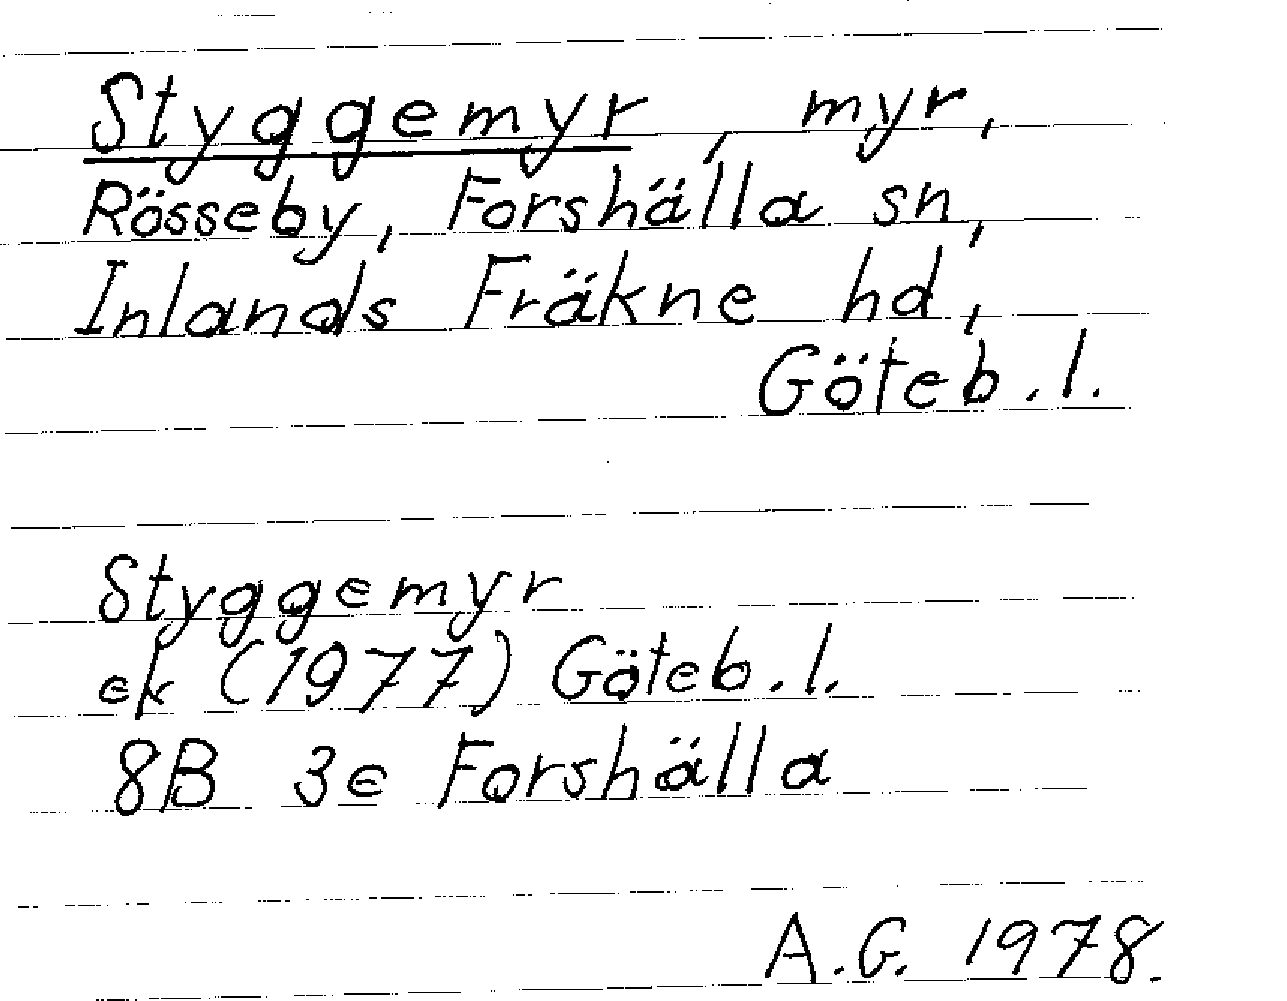 Styggemyr, myr,
Rösseby, Forshälla sn,
Inlands Fräkne hd,
Göteb. l.
Styggemyr
ek (1977) Göteb. l.
8B 3e Forshälla
A.G. 1978.